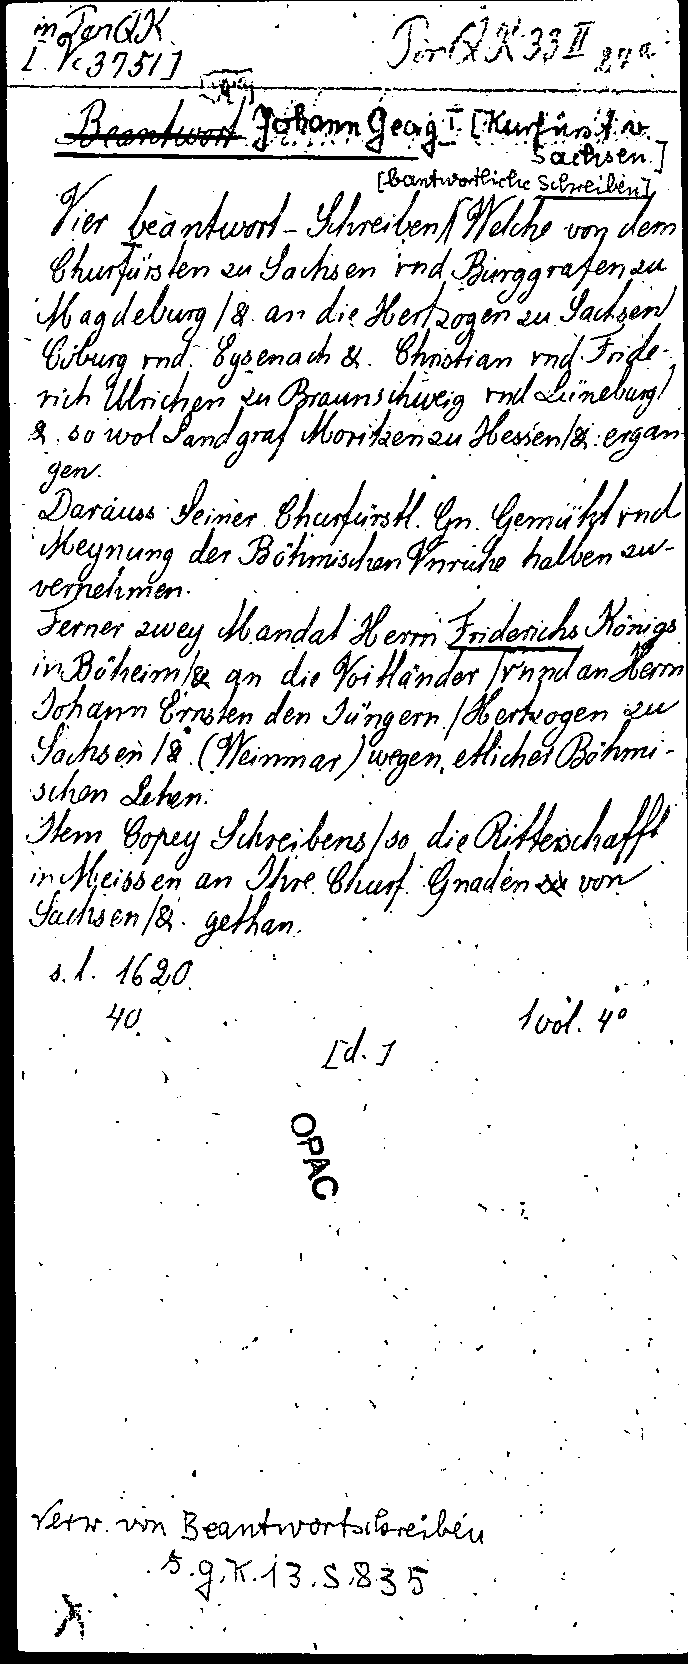 in Pon QK
[Vc 3751]
Pon QK 33 II
Beantwort Johann Georg I [Kurfürst v.
Sachsen]
[bantwortliche Schreiben]
Vier beantwort-Schreiben/ Welche von dem
Churfürsten zu Sachsen vnd Burggrafen zu
Magdeburg/&. an die Hertzogen zu Sachsen/
Coburg vnd. Eysenach &. Christian vnd Fride-
rich Ulrichen zu Braunschweig vnd Lüneburg/
&. so wol Landgraf Moritzen zu Hessen/&. ergan
gen.
Darauss Seiner Churfürstl. Gn. Gemüht vnd
Meynung der Böhmischen Vnruhe halben zu-
vernehmen.
Ferner zwey Mandat Herrn Friderichs Königs
in Böheim/& an die Voitländer/ vnnd an Herrn
Johann Ernsten den Jüngern/ Hertzogen zu
Sachsen/&. (Weinmar) wegen etlicher Böhmi-
schen Lehen.
Item Copey Schreibens/ so die Ritterschafft
in Meissen an Ihre Churf. Gnaden von
Sachsen/&. gethan.
s.l. 1620.
4o.
1 vol. 4°
[d.]
OPAC
Verw. von Beantwortschreiben
s.g.K.13.S.835